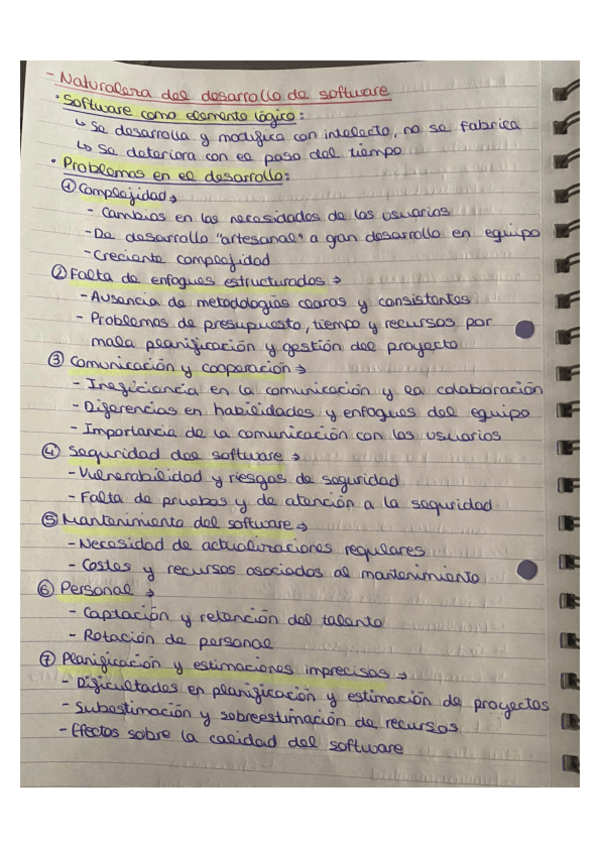 - Naturaleza del desarrollo de software
· Software como elemento lógico:
↳ Se desarrolla y modifica con intelecto, no se fabrica
↳ Se deteriora con el paso del tiempo
· Problemas en el desarrollo:
① Complejidad →
- Cambios en las necesidades de los usuarios
- De desarrollo "artesanal" a gan desarrollo en equipo
- Creciente complejidad
② Falta de enfoques estructurados →
- Ausencia de metodologías claras y consistentes
- Problemas de presupuesto, tiempo y recursos por
mala planificación y gestión del proyecto
③ Comunicación y cooperación →
- Ineficiencia en la comunicación y la colaboración
- Diferencias en habilidades y enfoques del equipo
- Importancia de la comunicación con los usuarios
④ Seguridad del software →
- Vulnerabilidad y riesgos de seguridad
- Falta de pruebas y de atención a la seguridad
⑤ Mantenimiento del software →
- Necesidad de actualizaciones regulares
- Costes y recursos asociados al mantenimiento
⑥ Personal →
- Captación y retención del talento
- Rotación de personal
⑦ Planificación y estimaciones imprecisas →
- Dificultades en planificación y estimación de proyectos
- Subestimación y sobreestimación de recursos
- Efectos sobre la calidad del software